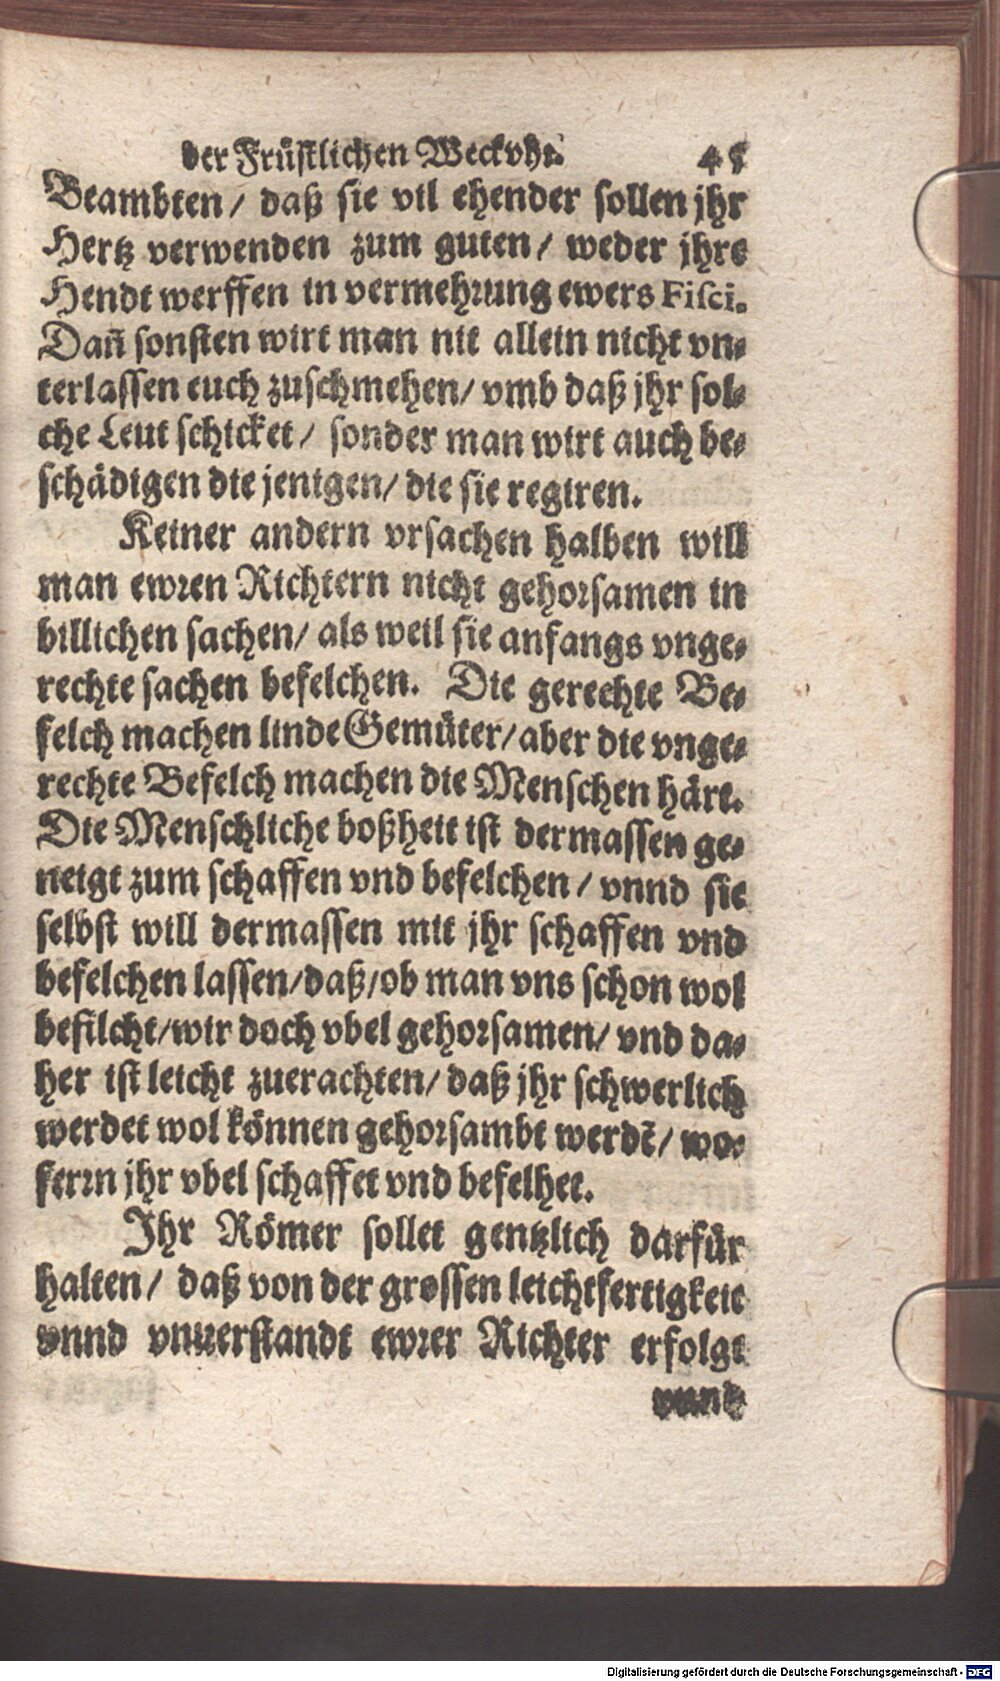 der Früstlichen Weckvhr. 45
Beambten/ daß sie vil ehender sollen jhr
Hertz verwenden zum guten/ weder jhre
Hendt werffen in vermehrung ewers Fisci.
Dañ sonsten wirt man nit allein nicht vn-
terlassen euch zuschmehen/ vmb daß jhr sol-
che Leut schicket/ sonder man wirt auch be-
schädigen die jenigen/ die sie regiren.
Keiner andern vrsachen halben will
man ewren Richtern nicht gehorsamen in
billichen sachen/ als weil sie anfangs vnge-
rechte sachen befelchen. Die gerechte Be-
felch machen linde Gemüter/ aber die vnge-
rechte Befelch machen die Menschen härt.
Die Menschliche boßheit ist dermassen ge-
neigt zum schaffen vnd befelchen/ vnnd sie
selbst will dermassen mit jhr schaffen vnd
befelchen lassen/ daß/ ob man vns schon wol
befilcht/ wir doch vbel gehorsamen/ vnd da-
her ist leicht zuerachten/ daß jhr schwerlich
werdet wol können gehorsambt werdẽ/ wo-
ferrn jhr vbel schaffet vnd befelhet.
Ihr Römer sollet gentzlich darfür
halten/ daß von der grossen leichtfertigkeit
vnnd vnuerstandt ewrer Richter erfolgt
vnnd
Digitalisierung gefördert durch die Deutsche Forschungsgemeinschaft - DFG